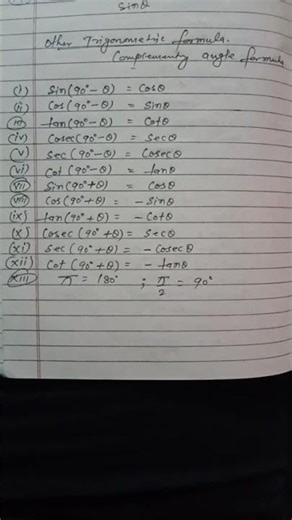 Sinθ
Other Trigonometric formula.
Complementry angle formula
(i) Sin(90°-θ) = Cosθ
(ii) Cos(90°-θ) = Sinθ
(iii) tan(90°-θ) = Cotθ
(iv) Cosec(90°-θ) = Secθ
(v) Sec(90°-θ) = Cosecθ
(vi) Cot(90°-θ) = tanθ
(vii) Sin(90°+θ) = Cosθ
(viii) Cos(90°+θ) = -Sinθ
(ix) tan(90°+θ) = -Cotθ
(x) Cosec(90°+θ) = Secθ
(xi) Sec(90°+θ) = -Cosecθ
(xii) Cot(90°+θ) = -tanθ
(xiii) π = 180° ; π/2 = 90°